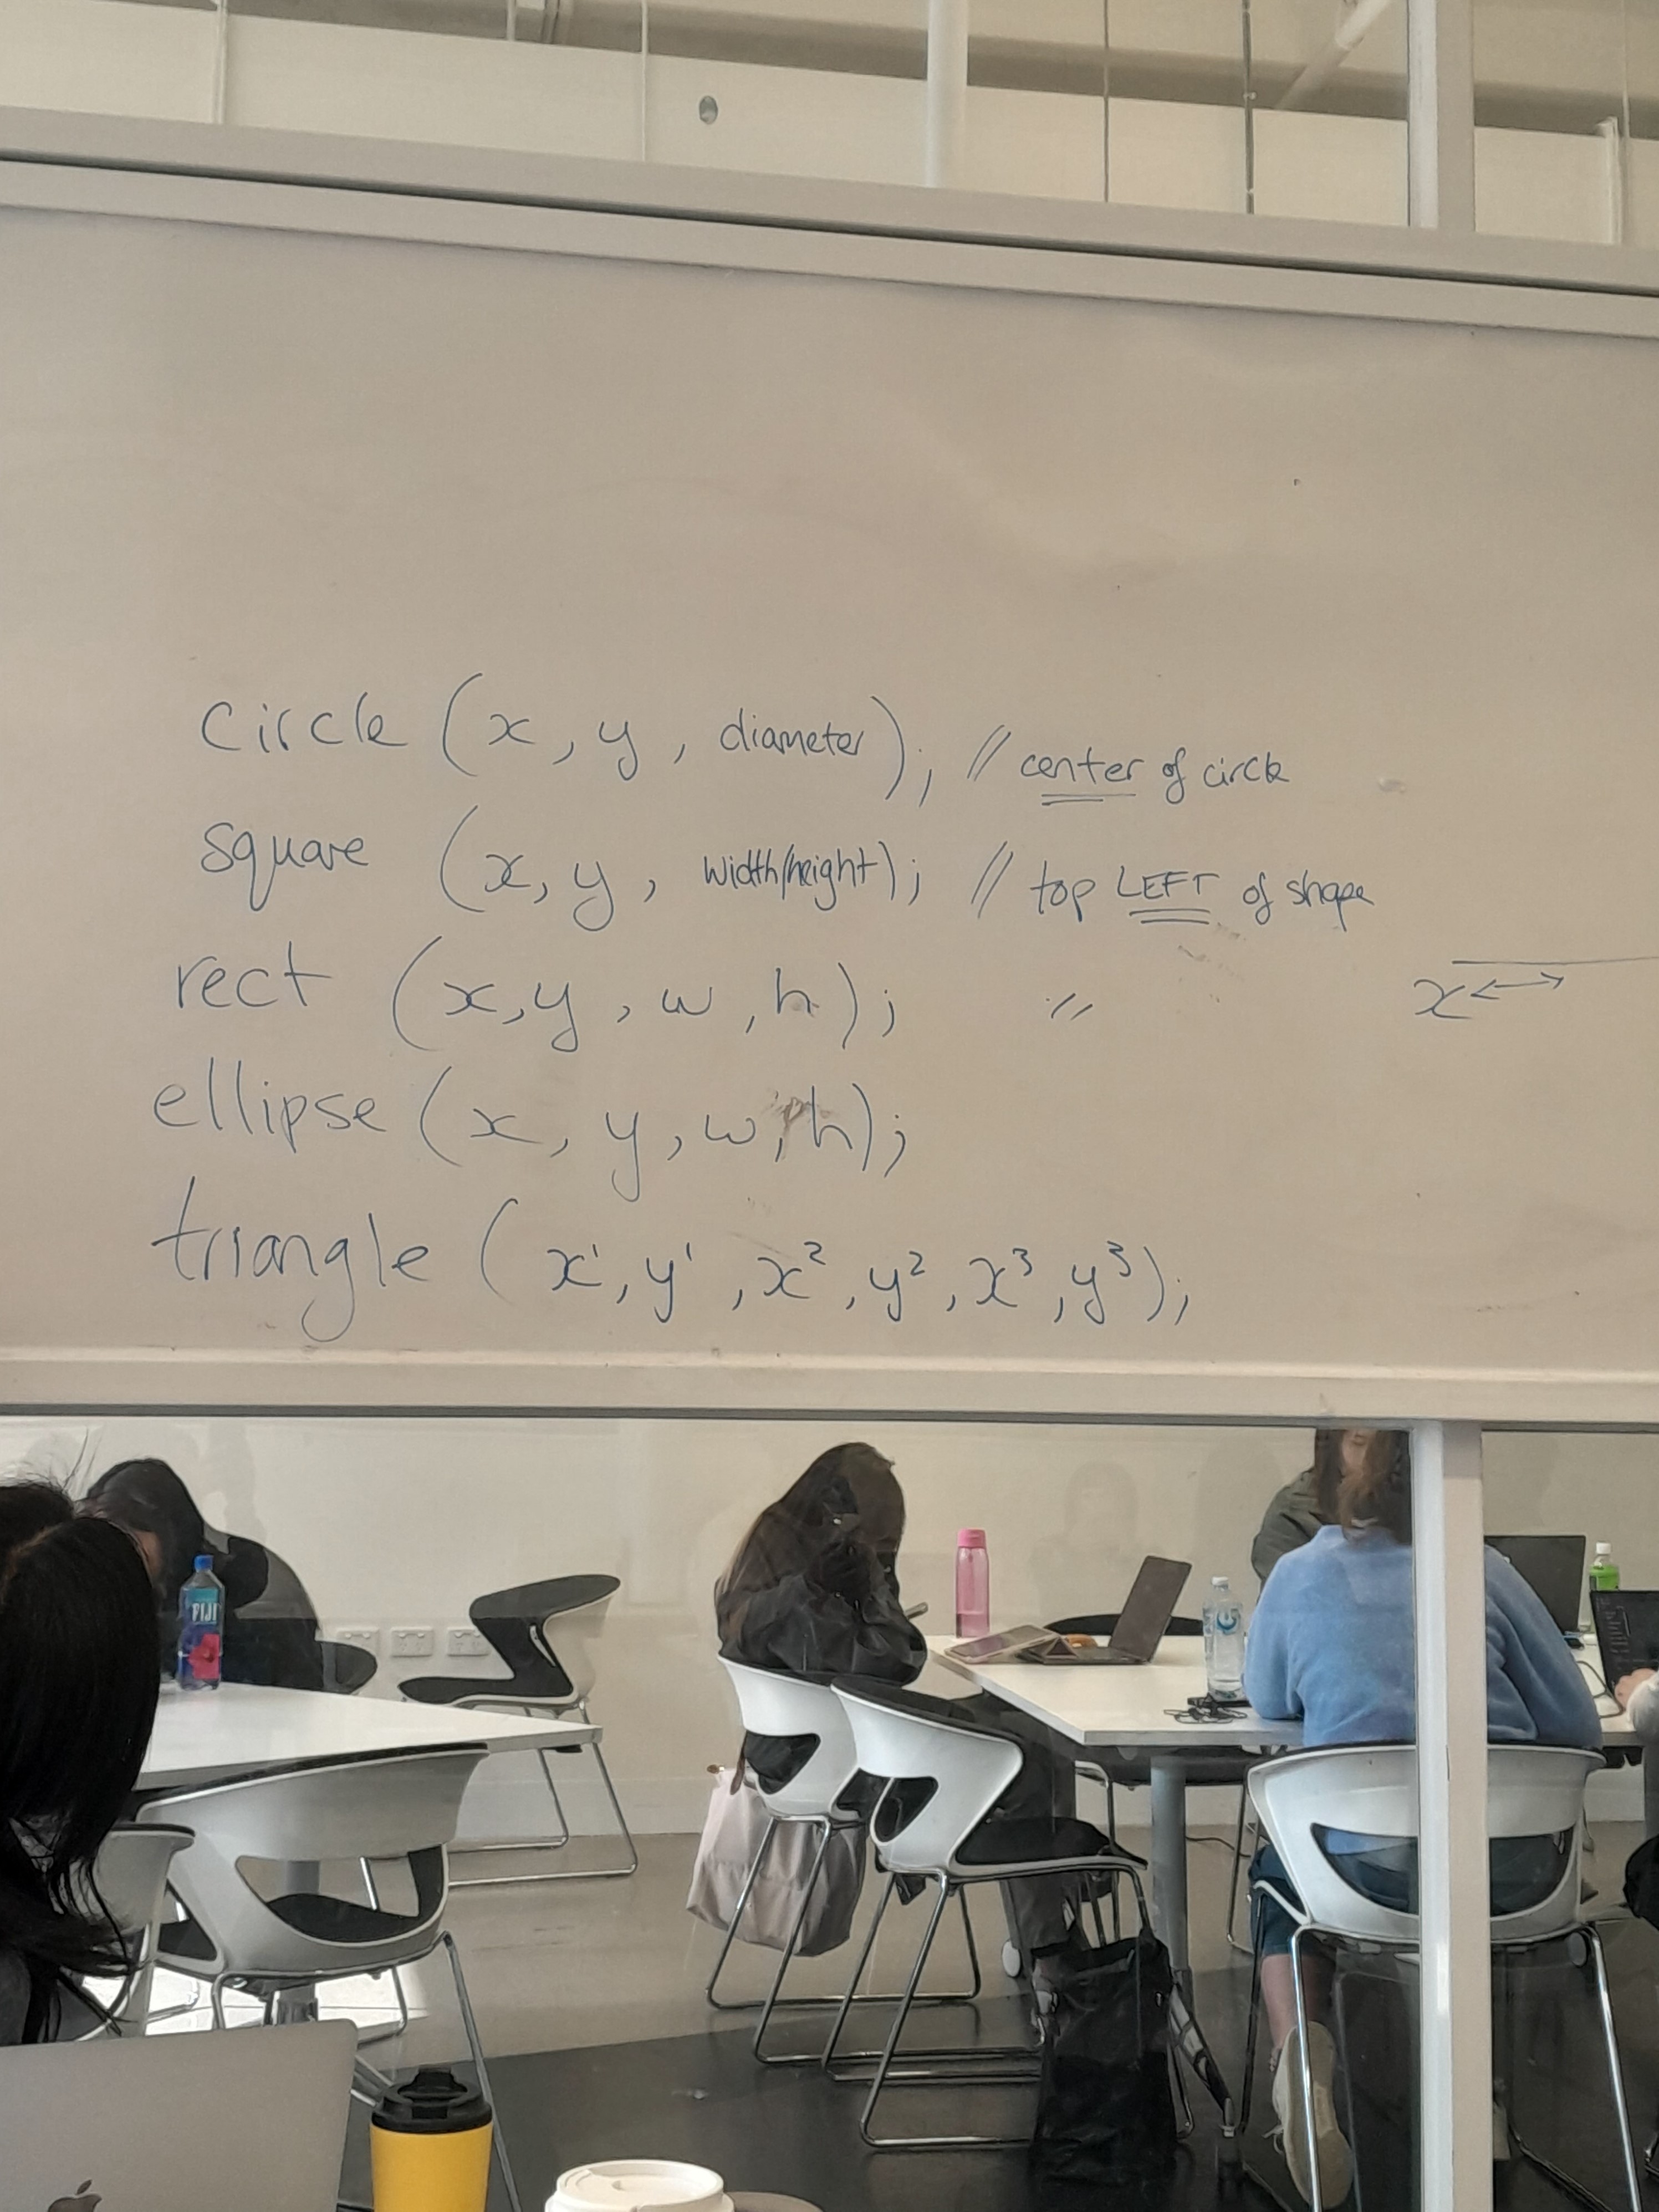 circle (x, y, diameter); // center of circle
square (x, y, width/height); // top LEFT of shape
rect (x, y, w, h); 〃
x
ellipse (x, y, w, h);
triangle (x¹, y¹, x², y², x³, y³);
FIJI